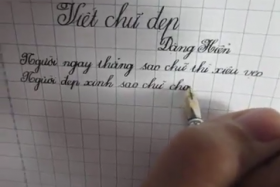 Viết chữ đẹp
Đăng Hiển
Người ngay thẳng sao chữ thì xiêu vẹo
Người đẹp xinh sao chữ cho